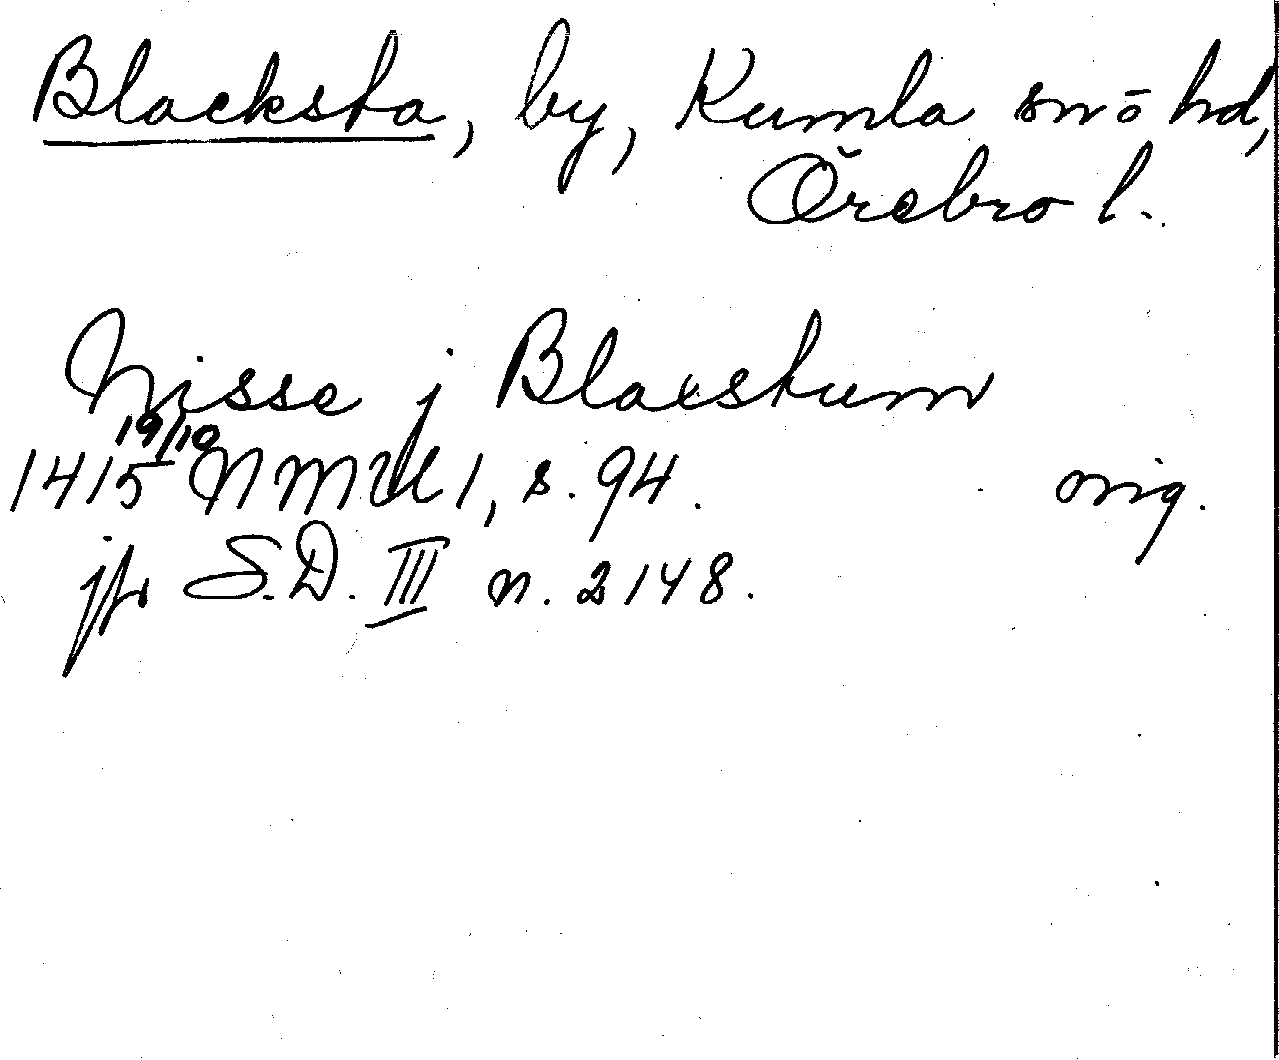 Blacksta, by, Kumla sn ō hd,
Örebro l.
Nisse j Blacstum
19/10
1415 NMU 1, s. 94. orig.
jfr S.D. III n. 2148.